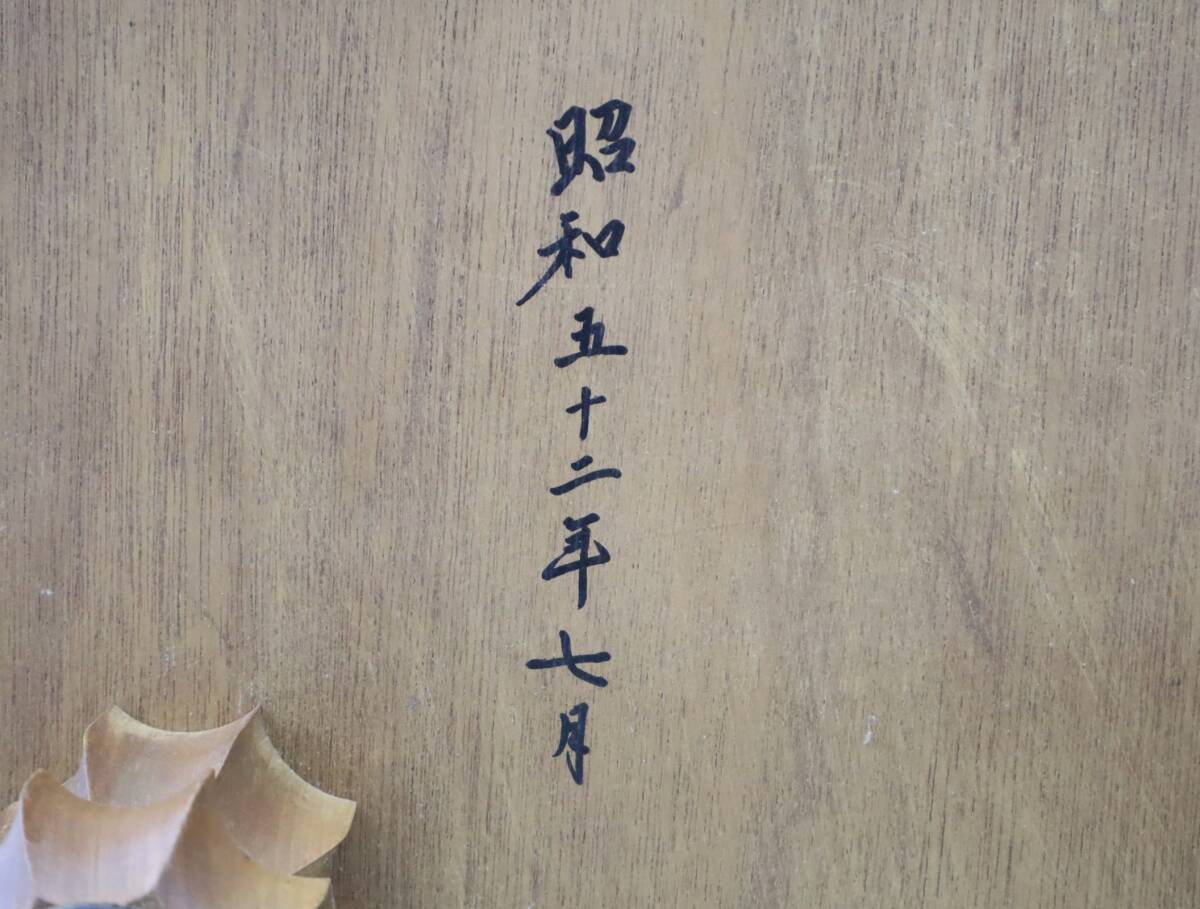 昭和五十二年七月